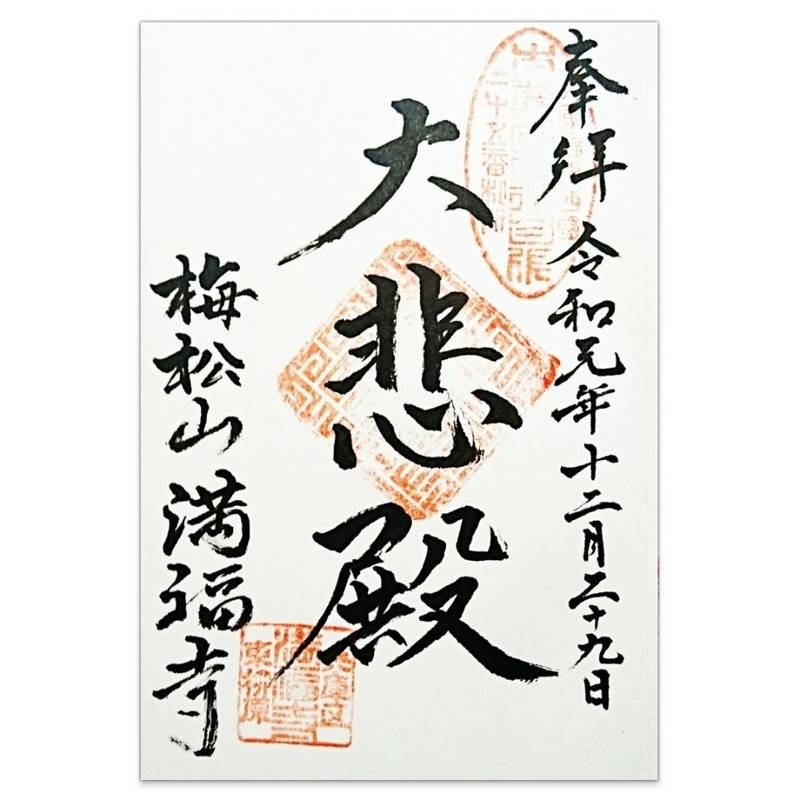 奉拝 令和元年十二月二十九日
大悲殿
梅松山 満福寺
二十五番
東柳原